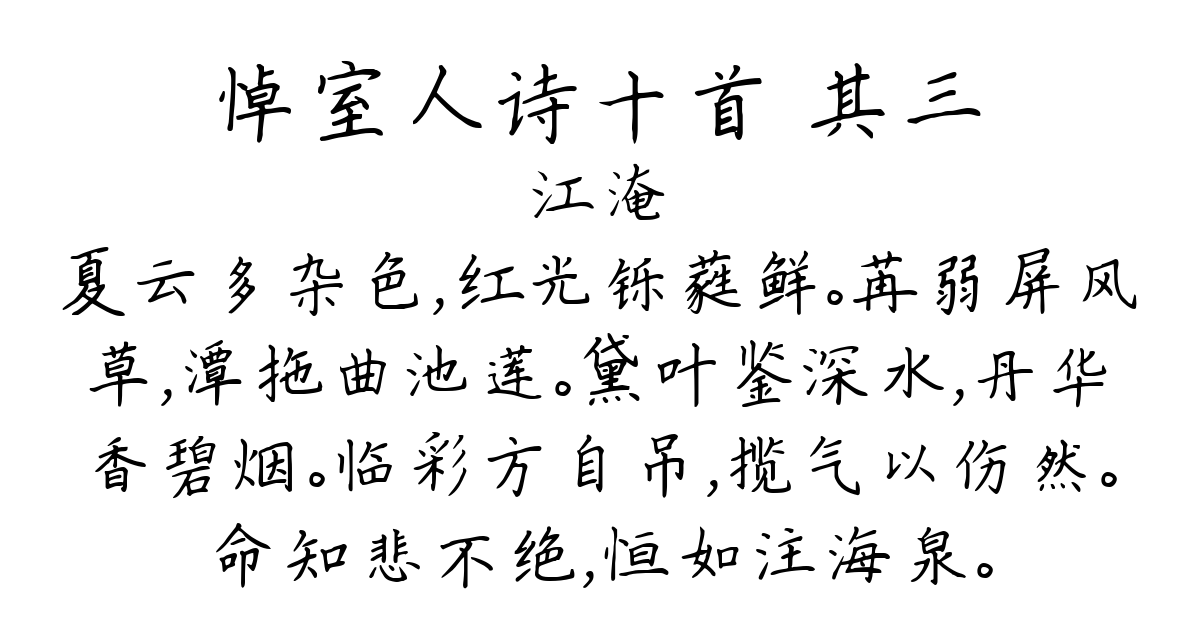 悼室人诗十首 其三
江淹
夏云多杂色,红光铄蕤鲜。苒弱屏风
草,潭拖曲池莲。黛叶鉴深水,丹华
香碧烟。临彩方自吊,揽气以伤然。
命知悲不绝,恒如注海泉。